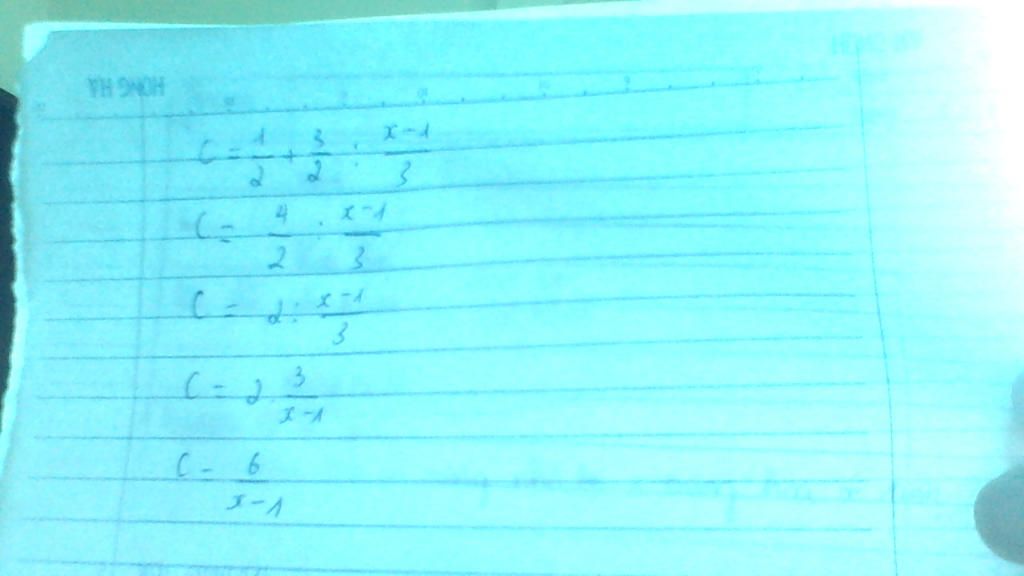 HONG HA
C = 1/2 + 3/2 : x-1/3
C = 4/2 : x-1/3
C = 2 : x-1/3
C = 2 . 3/x-1
C = 6/x-1